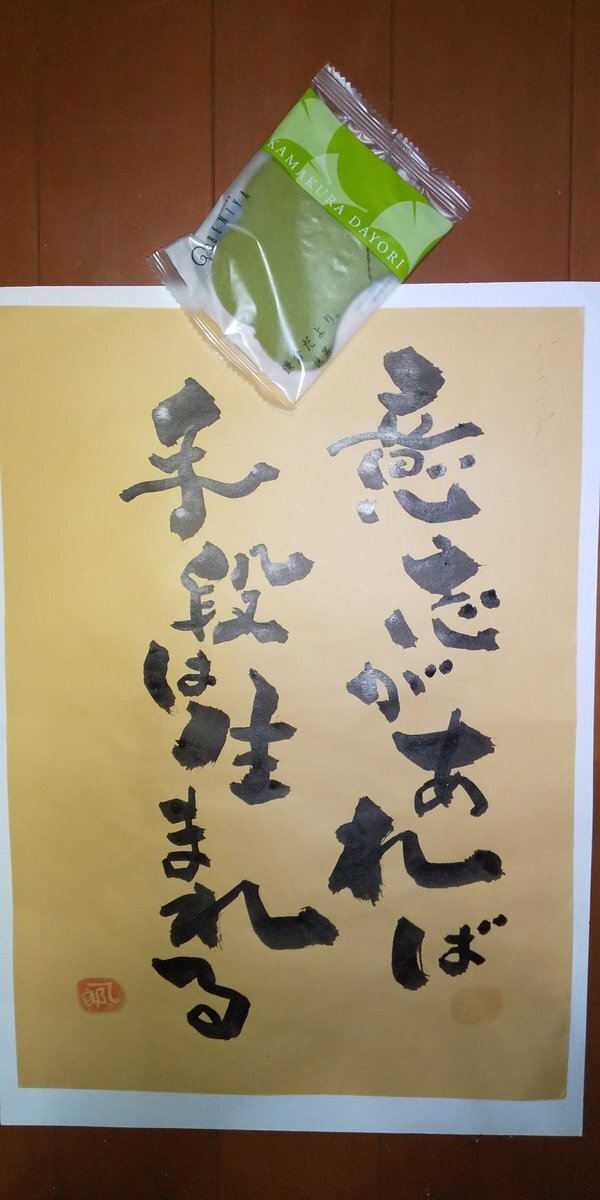 KAMAKURA DAYORI
BENIYA
鎌倉だより
意志があれば
手段は生まれる